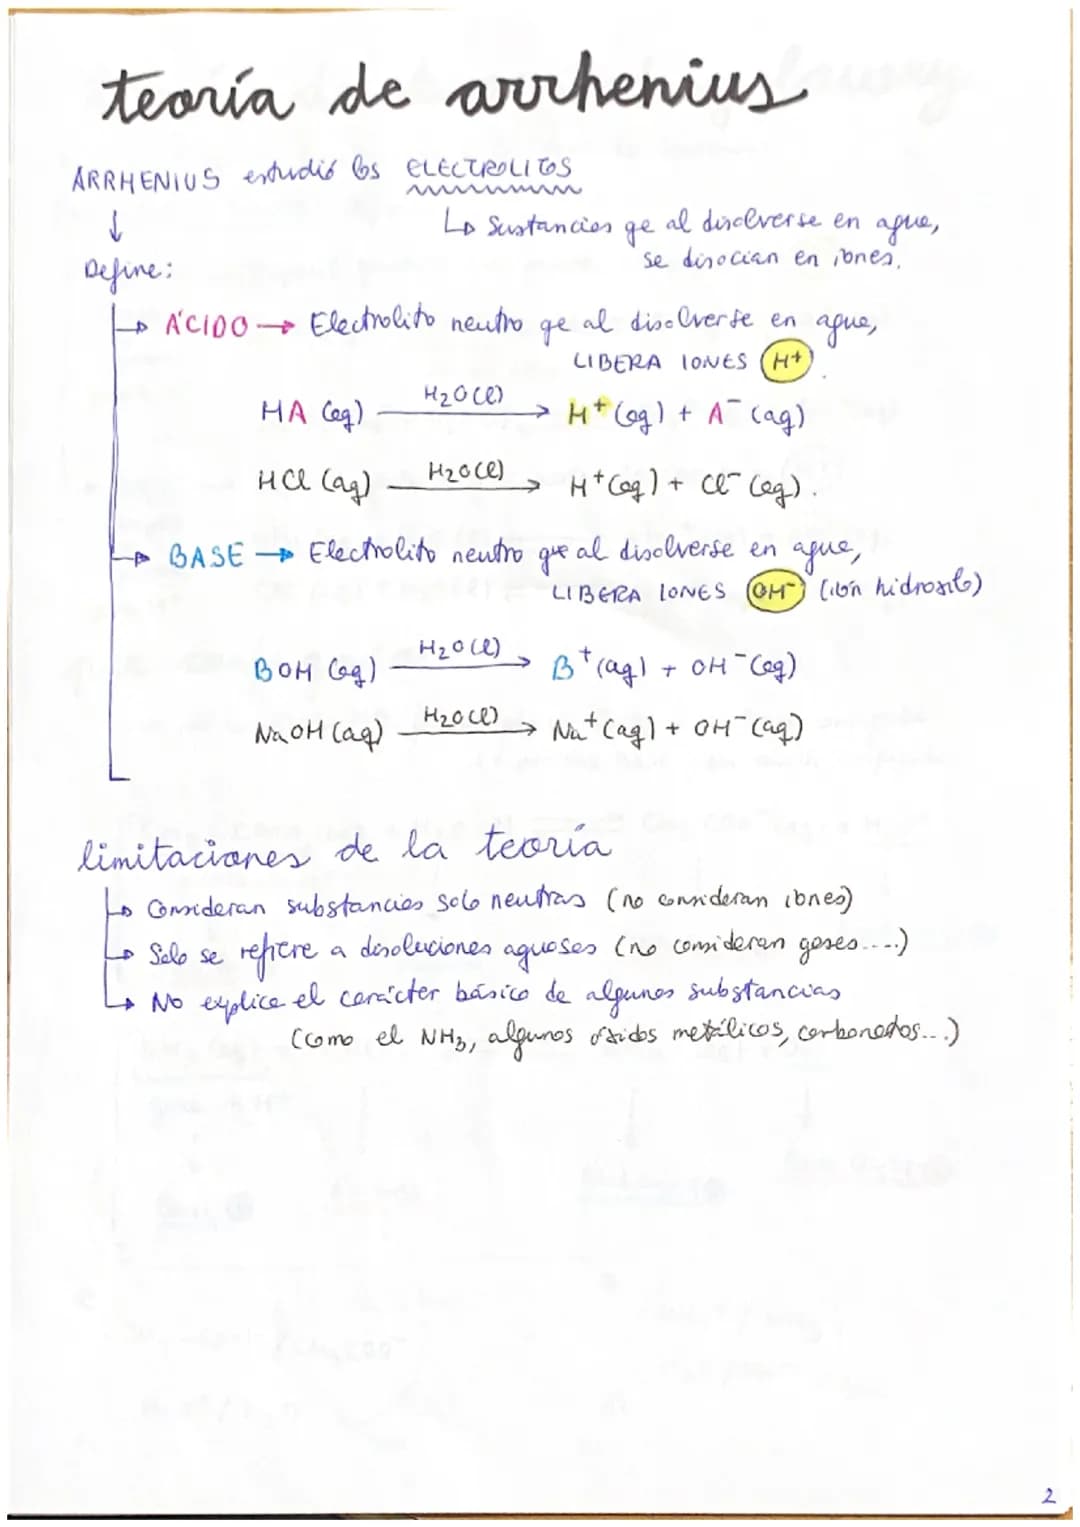 teoría de arrhenius
ARRHENIUS estudió los ELECTROLITOS
↓
↳ Sustancias qe al disolverse en agua,
se disocian en iones.
Define:
→ ÁCIDO → Electrolito neutro qe al disolverse en agua,
LIBERA IONES H+
HA (aq) —H2O(l)→ H+ (aq) + A- (aq)
HCl (aq) —H2O(l)→ H+(aq) + Cl- (aq).
→ BASE → Electrolito neutro que al disolverse en agua,
LIBERA IONES OH- (ión hidroxilo)
BOH (aq) —H2O(l)→ B+(aq) + OH-(aq)
NaOH (aq) —H2O(l)→ Na+(aq) + OH-(aq)
limitaciones de la teoría
↳ Consideran substancias solo neutras (no consideran iones)
↳ Solo se refiere a disoluciones aquosas (no consideran gases....)
↳ No explica el carácter básico de algunas substancias
(como el NH3, algunos óxidos metálicos, carbonatos...)
2